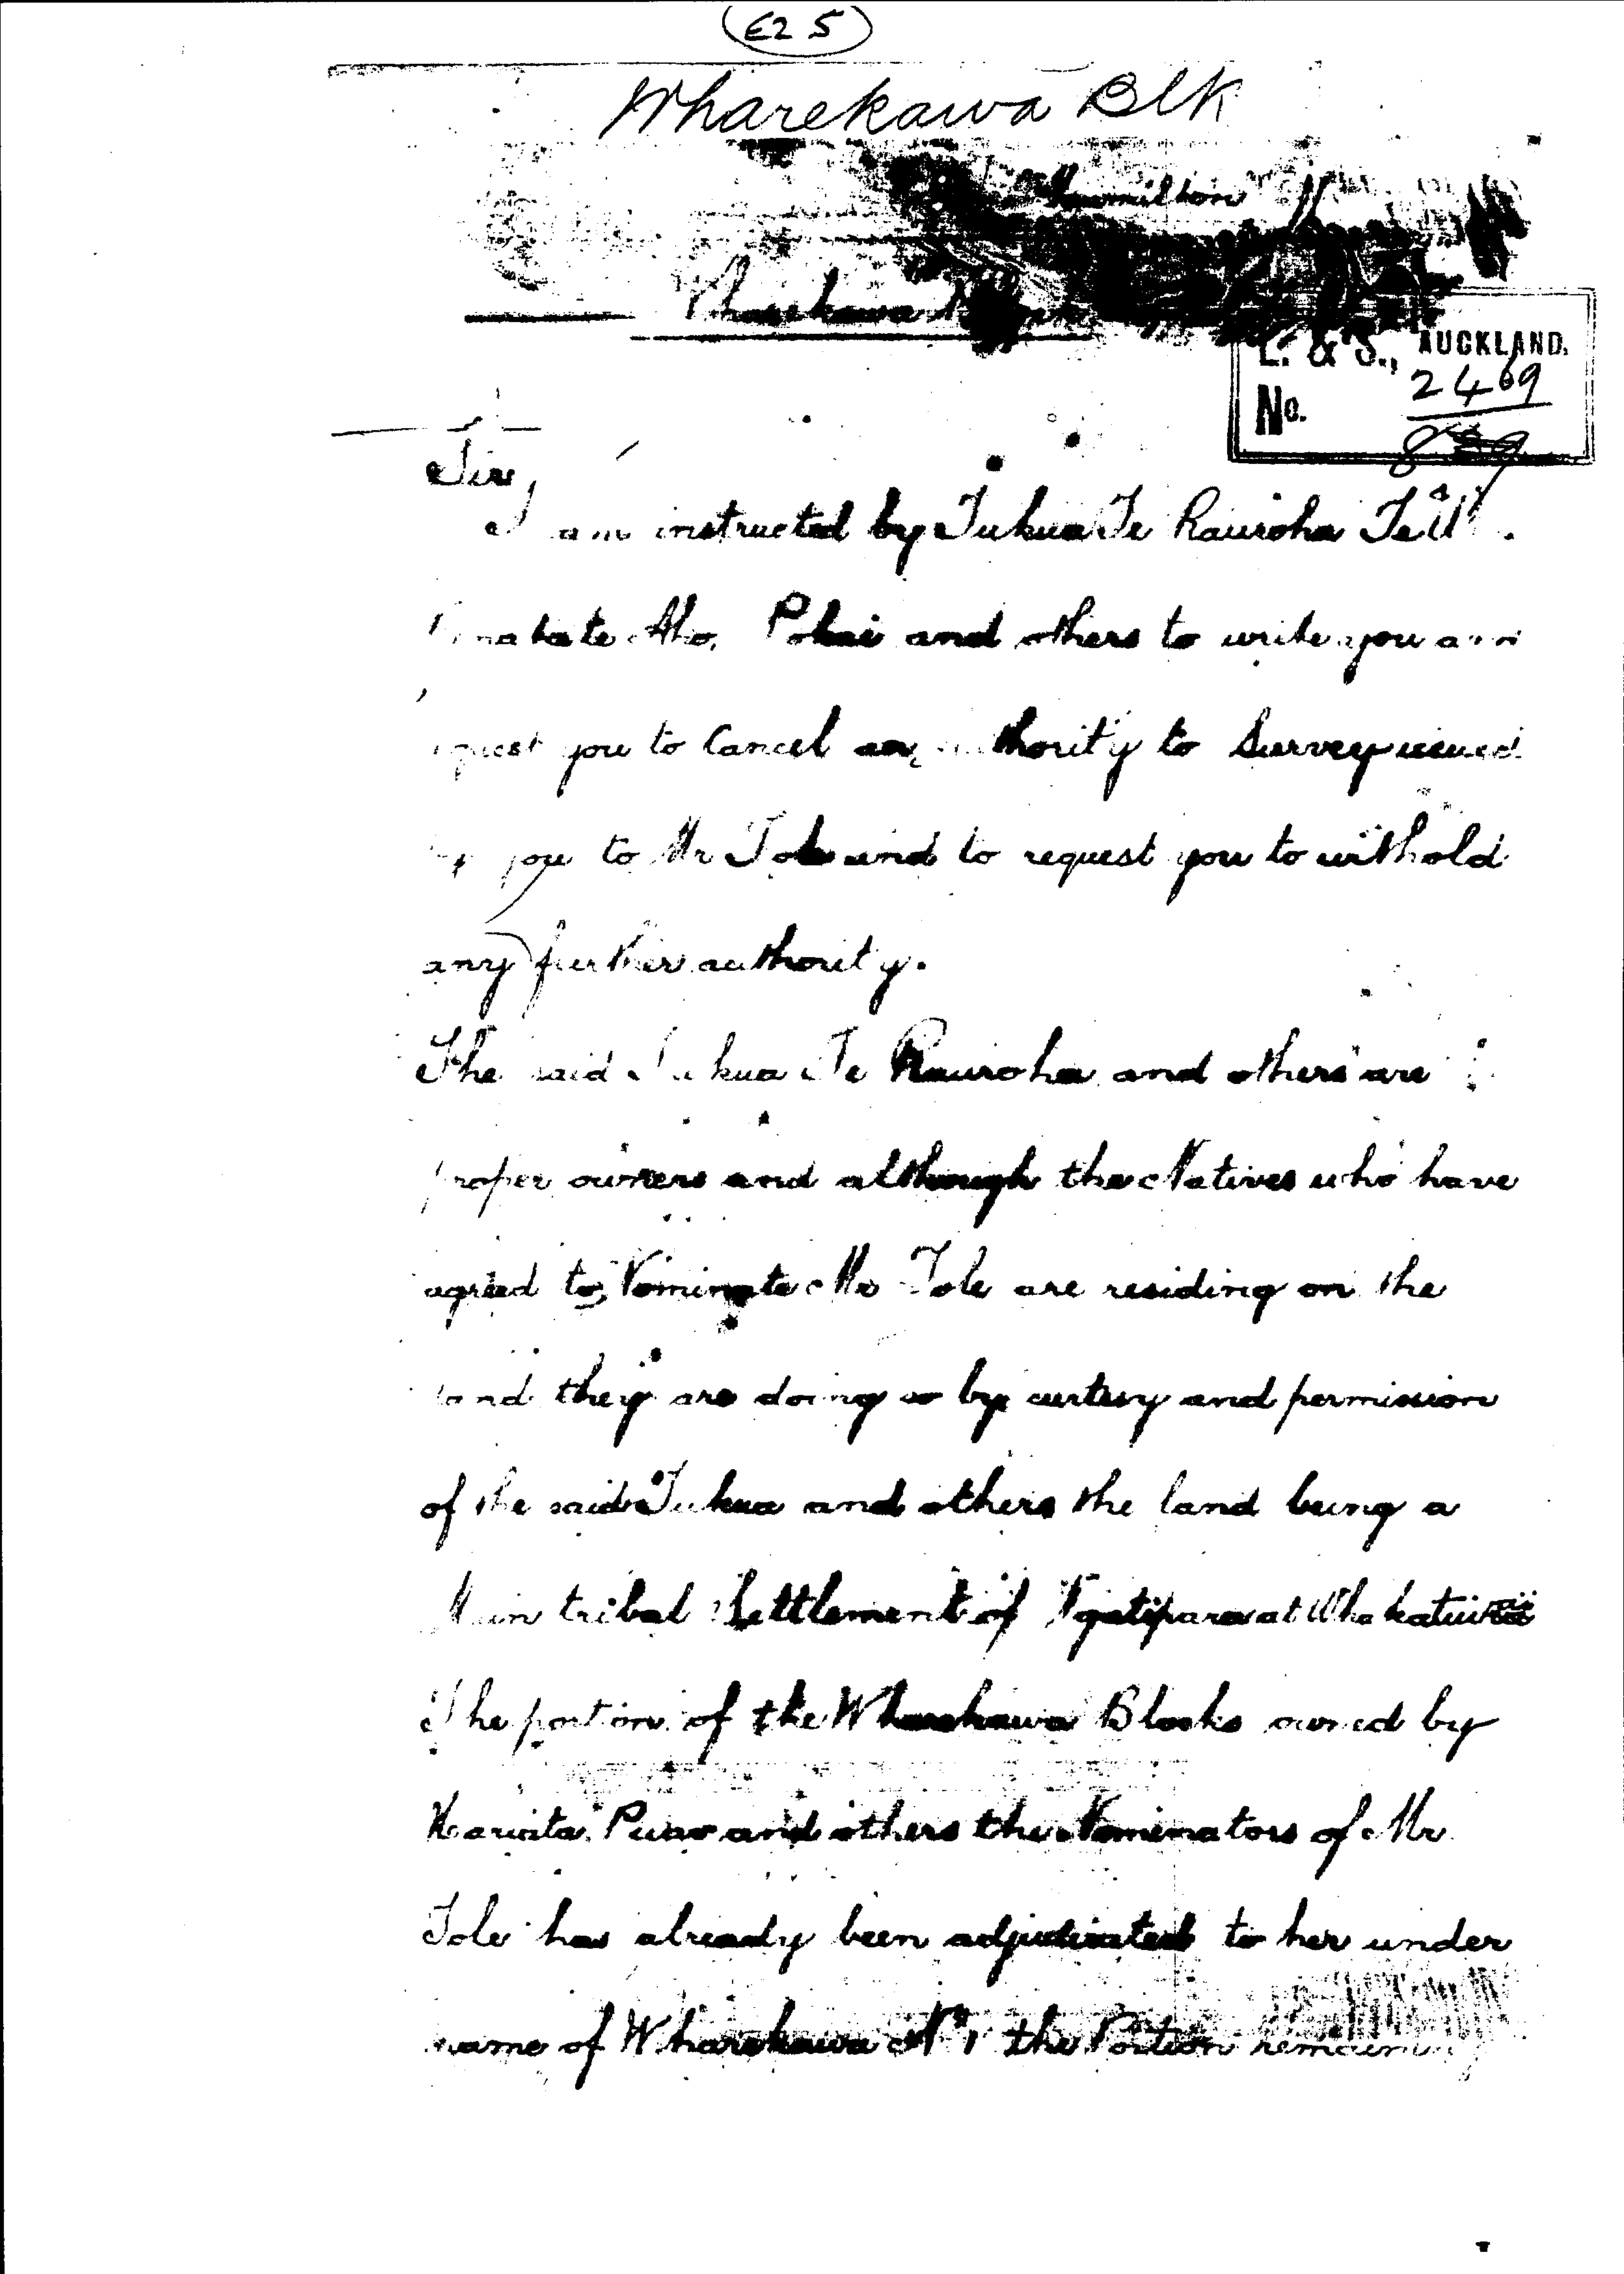 E2 5
Wharekawa Blk
Hamilton
Wharekawa
L. & S., AUCKLAND.
No. 2469
Sir,
I am instructed by Tukua Te Rauroha Te
Aho, Pokai and others to write you and
request you to Cancel any authority to Survey issued
by you to Mr Tole and to request you to withold
any further authority.
The said Tukua Te Rauroha and others are
proper owners and although the Natives who have
agreed to Nominate Mr Tole are residing on the
land they are doing so by curtesy and permission
of the said Tukua and others the land being a
Main tribal Settlement of Ngatipaoa at
The portion of the Wharekawa Blocks owned by
and others the Nominators of Mr
Tole has already been adjudicated to her under
name of Wharekawa No 1 the Portion remaining